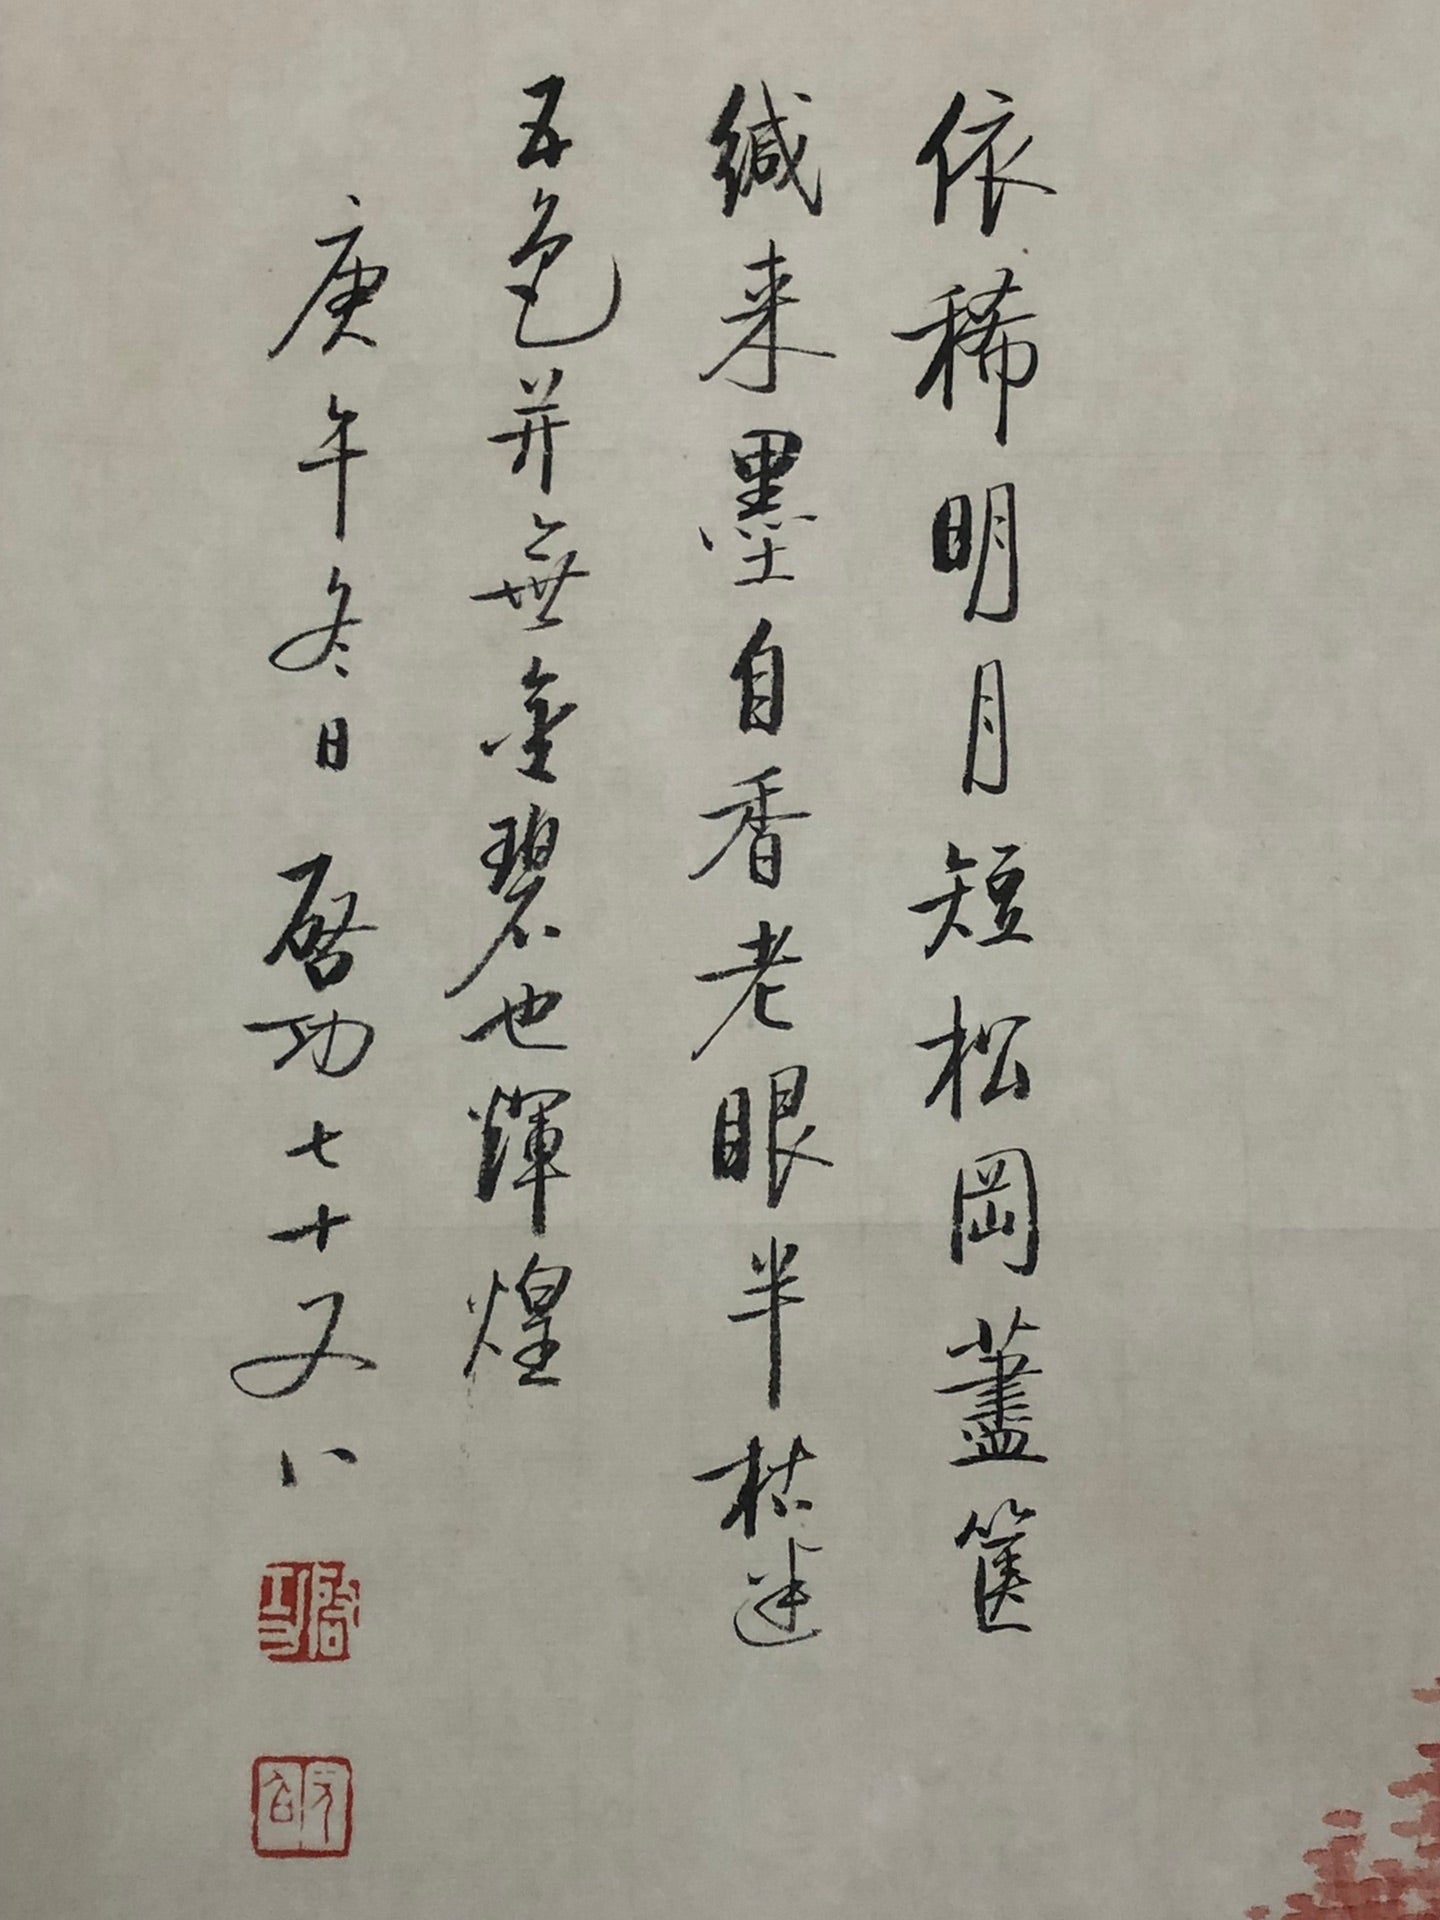 依稀明月短松岡藎篋
緘来墨自香老眼半枯迷
五色并無金碧也輝煌
庚午冬日 啓功七十又八
啓功
元白